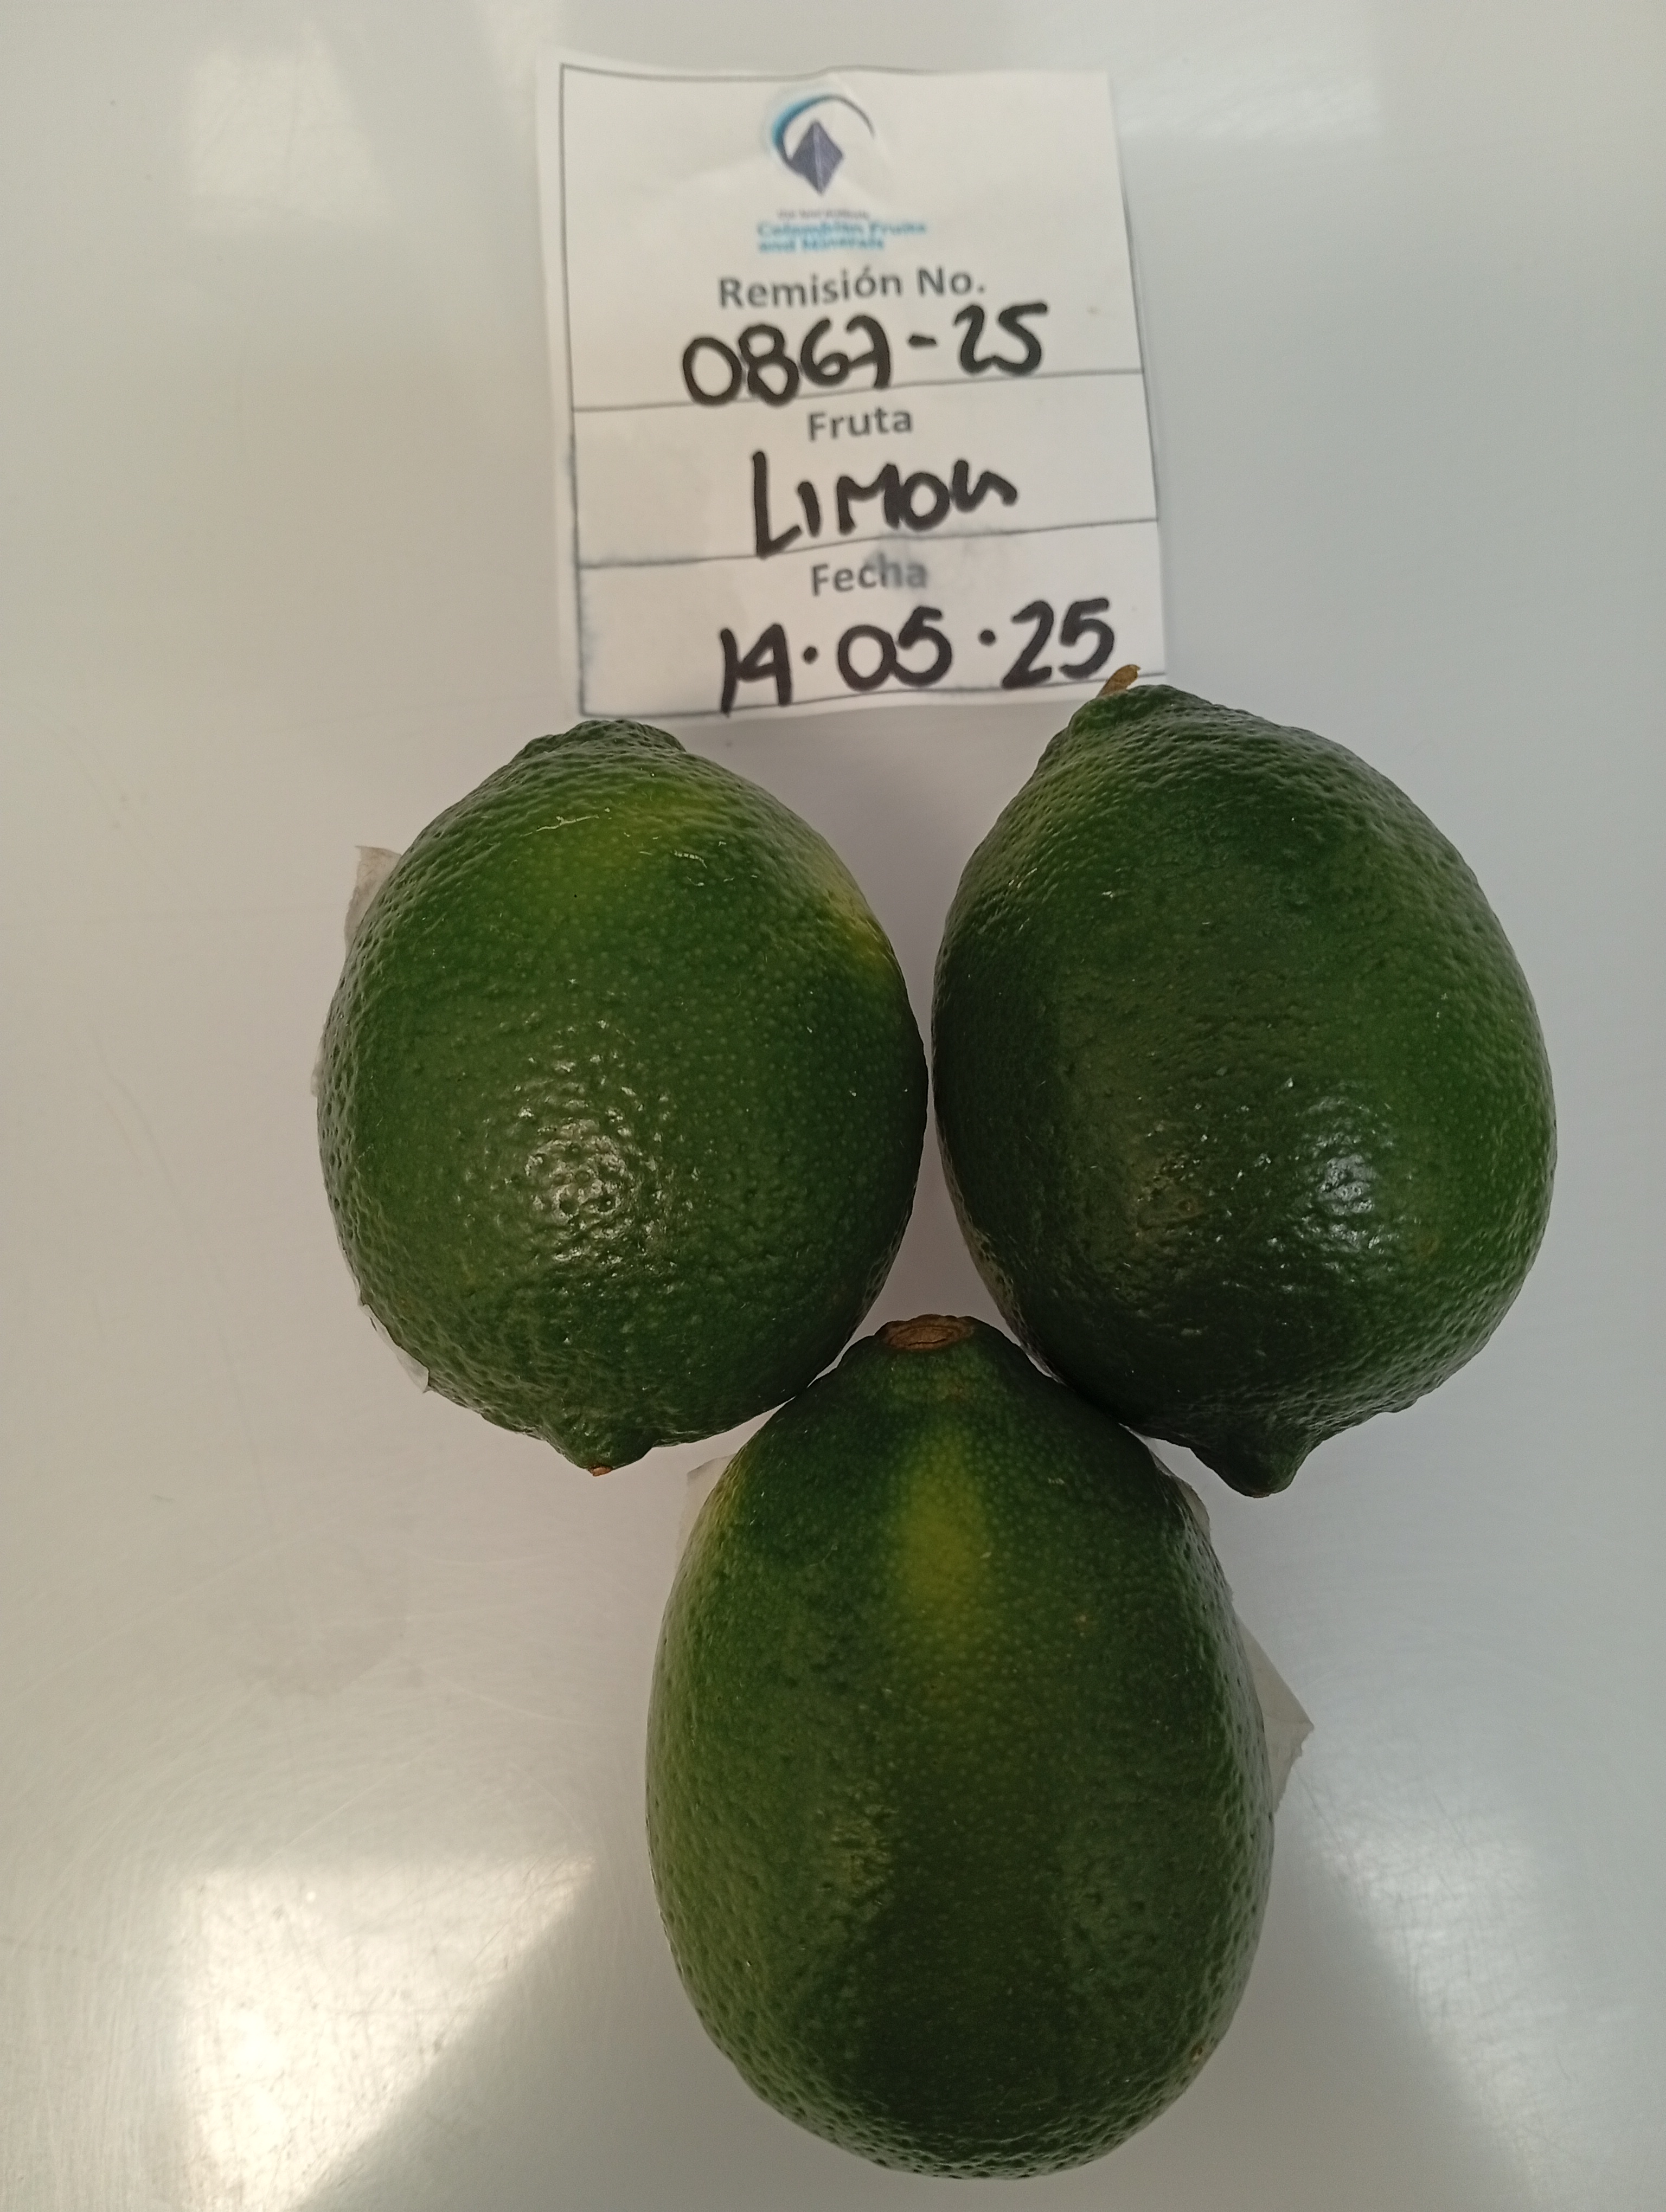 Colombian Fruits
and Minerals
Remisión No.
0867-25
Fruta
LIMON
Fecha
14.05.25